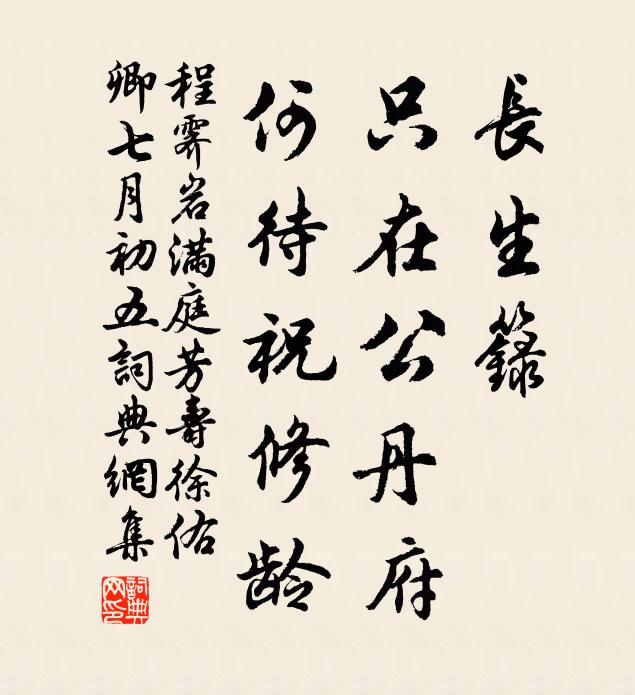 長生籙
只在公丹府
何待祝修龄
程霁岩滿庭芳壽徐佑
卿七月初五詞典網集
詞典网印